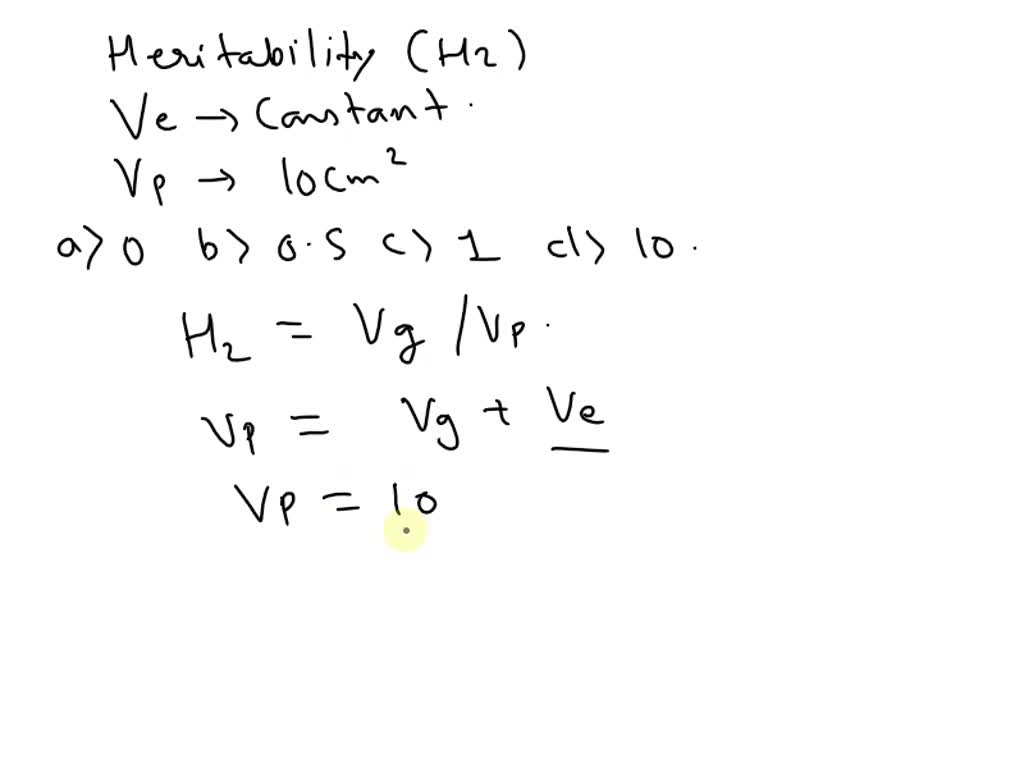 Heritability (H2)
Ve → Constant.
Vp → 10cm²
a> 0 b> 0.5 c> 1 d> 10.
H₂ = Vg / Vp.
Vp = Vg + Ve
Vp = 10